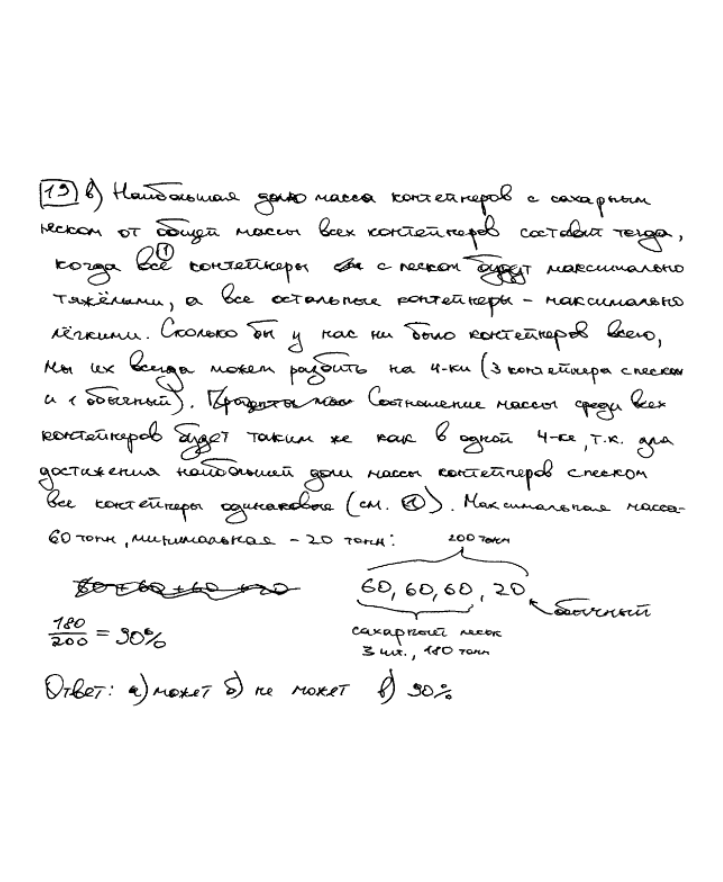 19 в) Наибольшая долю масса контейнеров с сахарным
песком от общей массы всех контейнеров составит тогда,
когда все ① контейнеры с песком будут максимально
тяжёлыми, а все остальные контейнеры - максимально
лёгкими. Сколько бы у нас ни было контейнеров всего,
мы их всегда можем разбить на 4-ки (3 контейнера с песком
и 1 обычный). Проценты мас Соотношение массы среди всех
контейнеров будет таким же как в одной 4-ке, т.к. для
достижения наибольшей доли массы контейнеров с песком
все контейнеры одинаковые (см. ①). Максимальная масса-
60 тонн, минимальная - 20 тонн:
200 тонн
60+60+60+20
60, 60, 60, 20
обычный
180/200 = 90%
сахарный песок
3 шт., 180 тонн
Ответ: а) может б) не может в) 90%